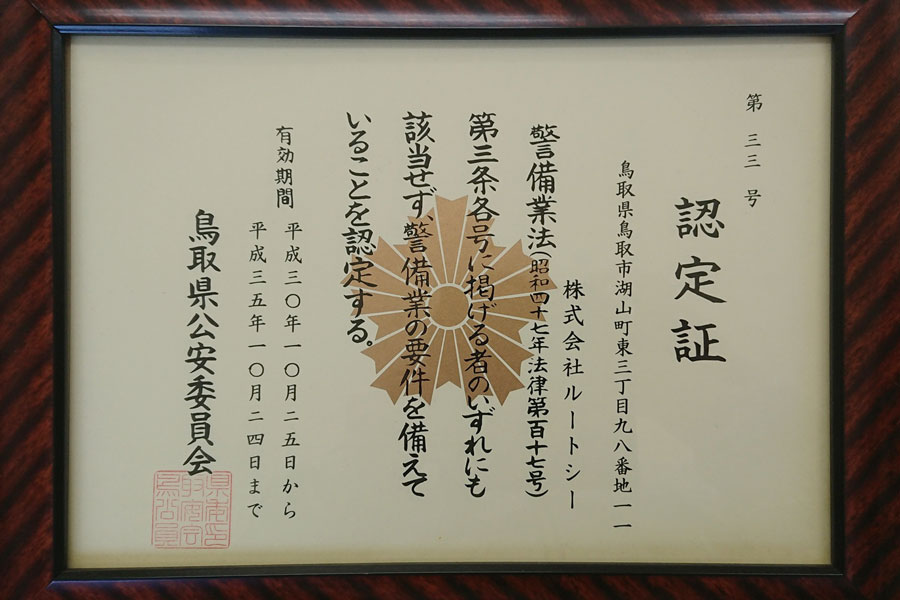 第三三号
認定証
鳥取県鳥取市湖山町東三丁目九八番地一一
株式会社ルートシー
警備業法(昭和四十七年法律第百十七号)
第三条各号に掲げる者のいずれにも
該当せず、警備業の要件を備えて
いることを認定する。
有効期間 平成三〇年一〇月二五日から
平成三五年一〇月二四日まで
鳥取県公安委員会